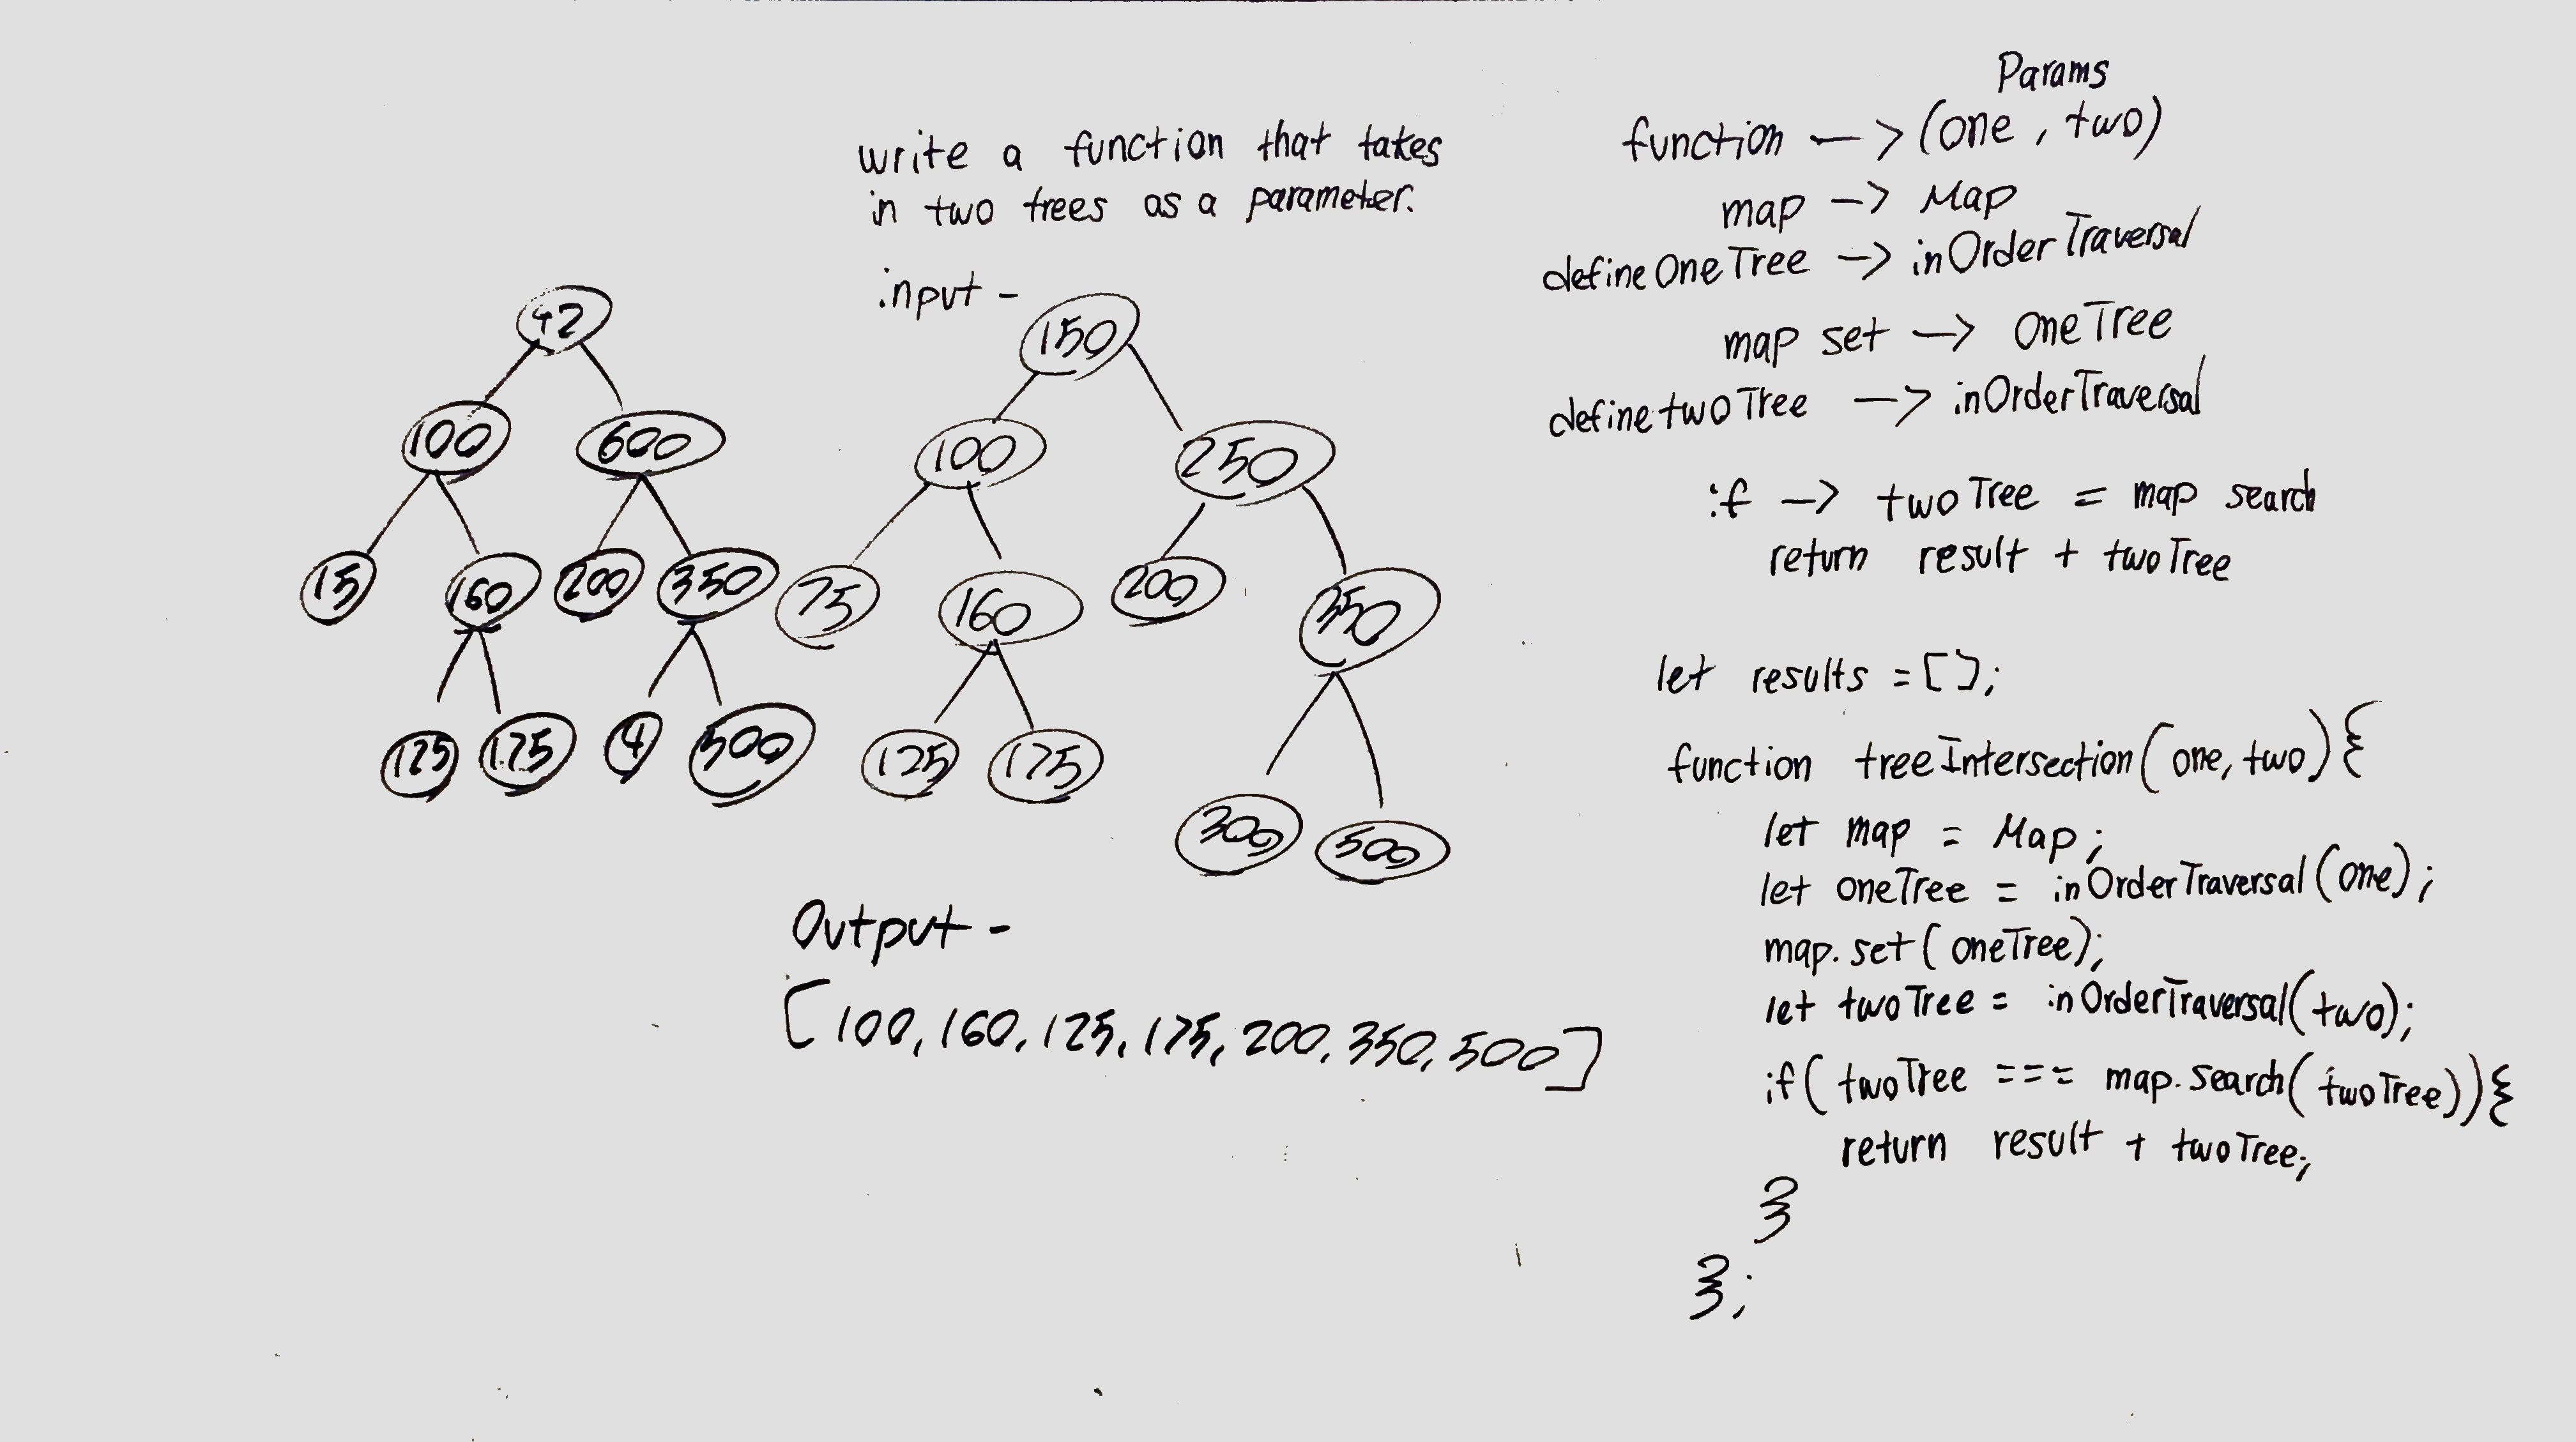 write a function that takes
in two trees as a parameter.
input -
42
100 600
15 160 200 350
125 175 4 500
150
100 250
75 160 200 350
125 175 300 500
Output -
[100, 160, 125, 175, 200, 350, 500]
Params
function —> (one, two)
map —> Map
define OneTree —> inOrderTraversal
map set —> OneTree
define twoTree —> inOrderTraversal
if —> twoTree = map search
return result + twoTree
let results = [];
function treeIntersection(one, two){
let map = Map;
let oneTree = inOrderTraversal(one);
map.set(oneTree);
let twoTree = inOrderTraversal(two);
if( twoTree === map.search(twoTree)){
return result + twoTree;
}
};